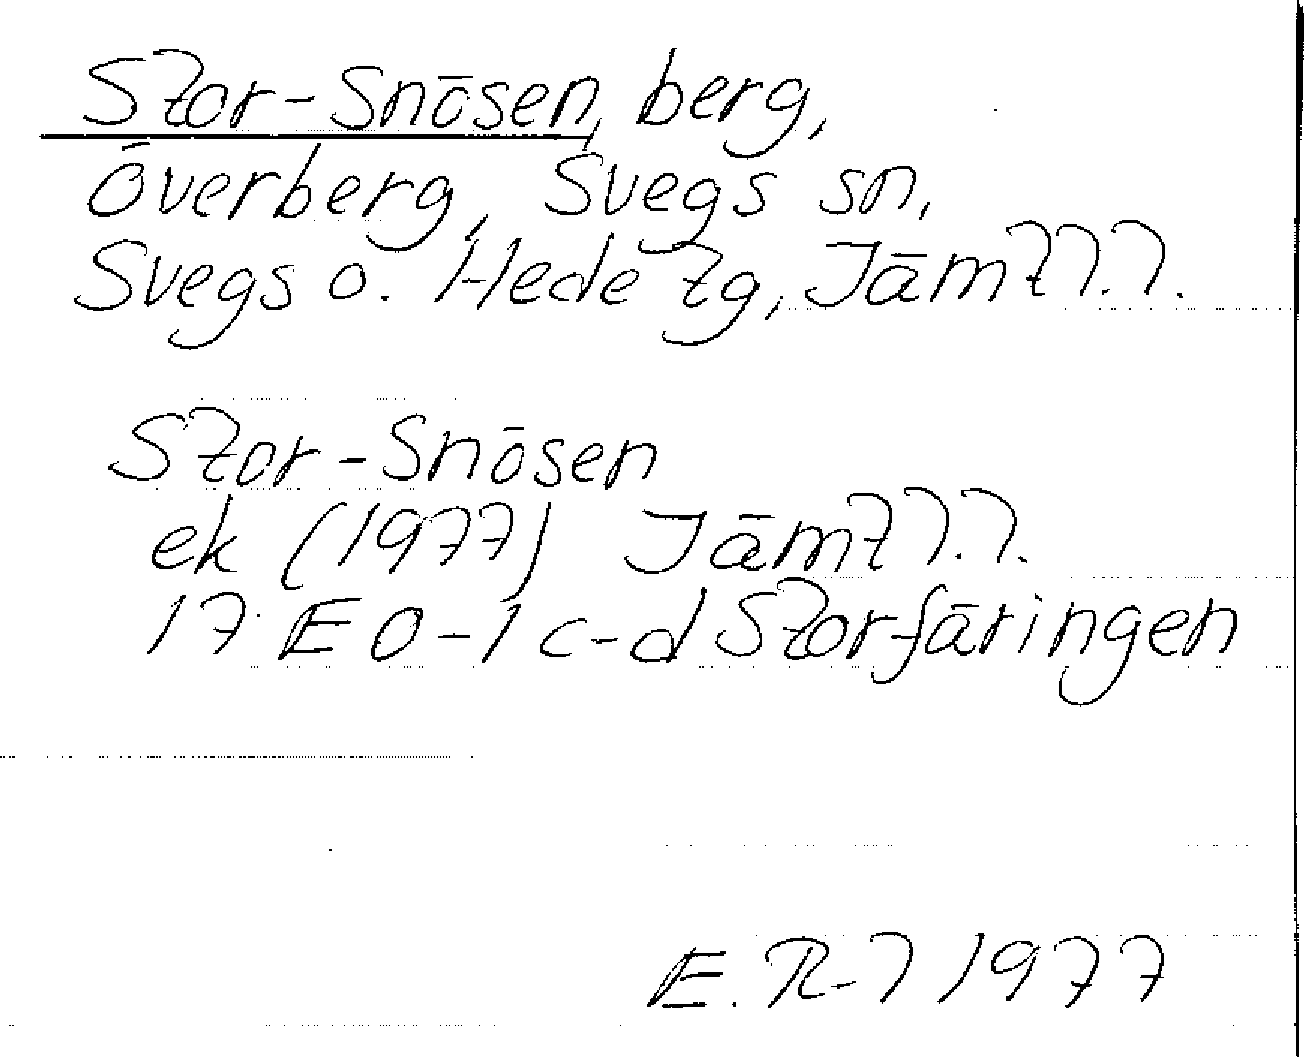 Stor-Snösen, berg,
Överberg, Svegs sn,
Svegs o. Hede tg, Jämtl.l.
Stor-Snösen
ek (1977) Jämtl.l.
17 E 0-1 c-d Storfäringen
E. R-l 1977